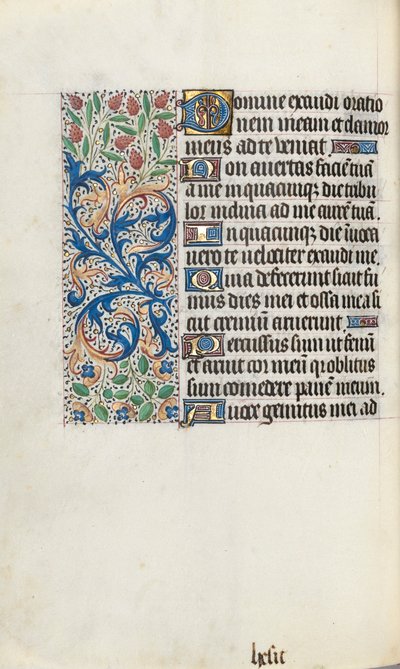 Domine exaudi oratio
nem meam et clamor
meus ad te veniat.
Non avertas faciē tuā
a me in quacunqʒ die tribu
lor inclina ad me aurē tuā.
In quacunqʒ die īvoca
vero te velociter exaudi me
Quia defecerunt sicut fu
mus dies mei et ossa mea si
cut cremiū aruerunt
Percussus sum ut fenū
et aruit cor meū q oblitus
sum comedere panē meum.
A voce gemitus mei ad
hesit